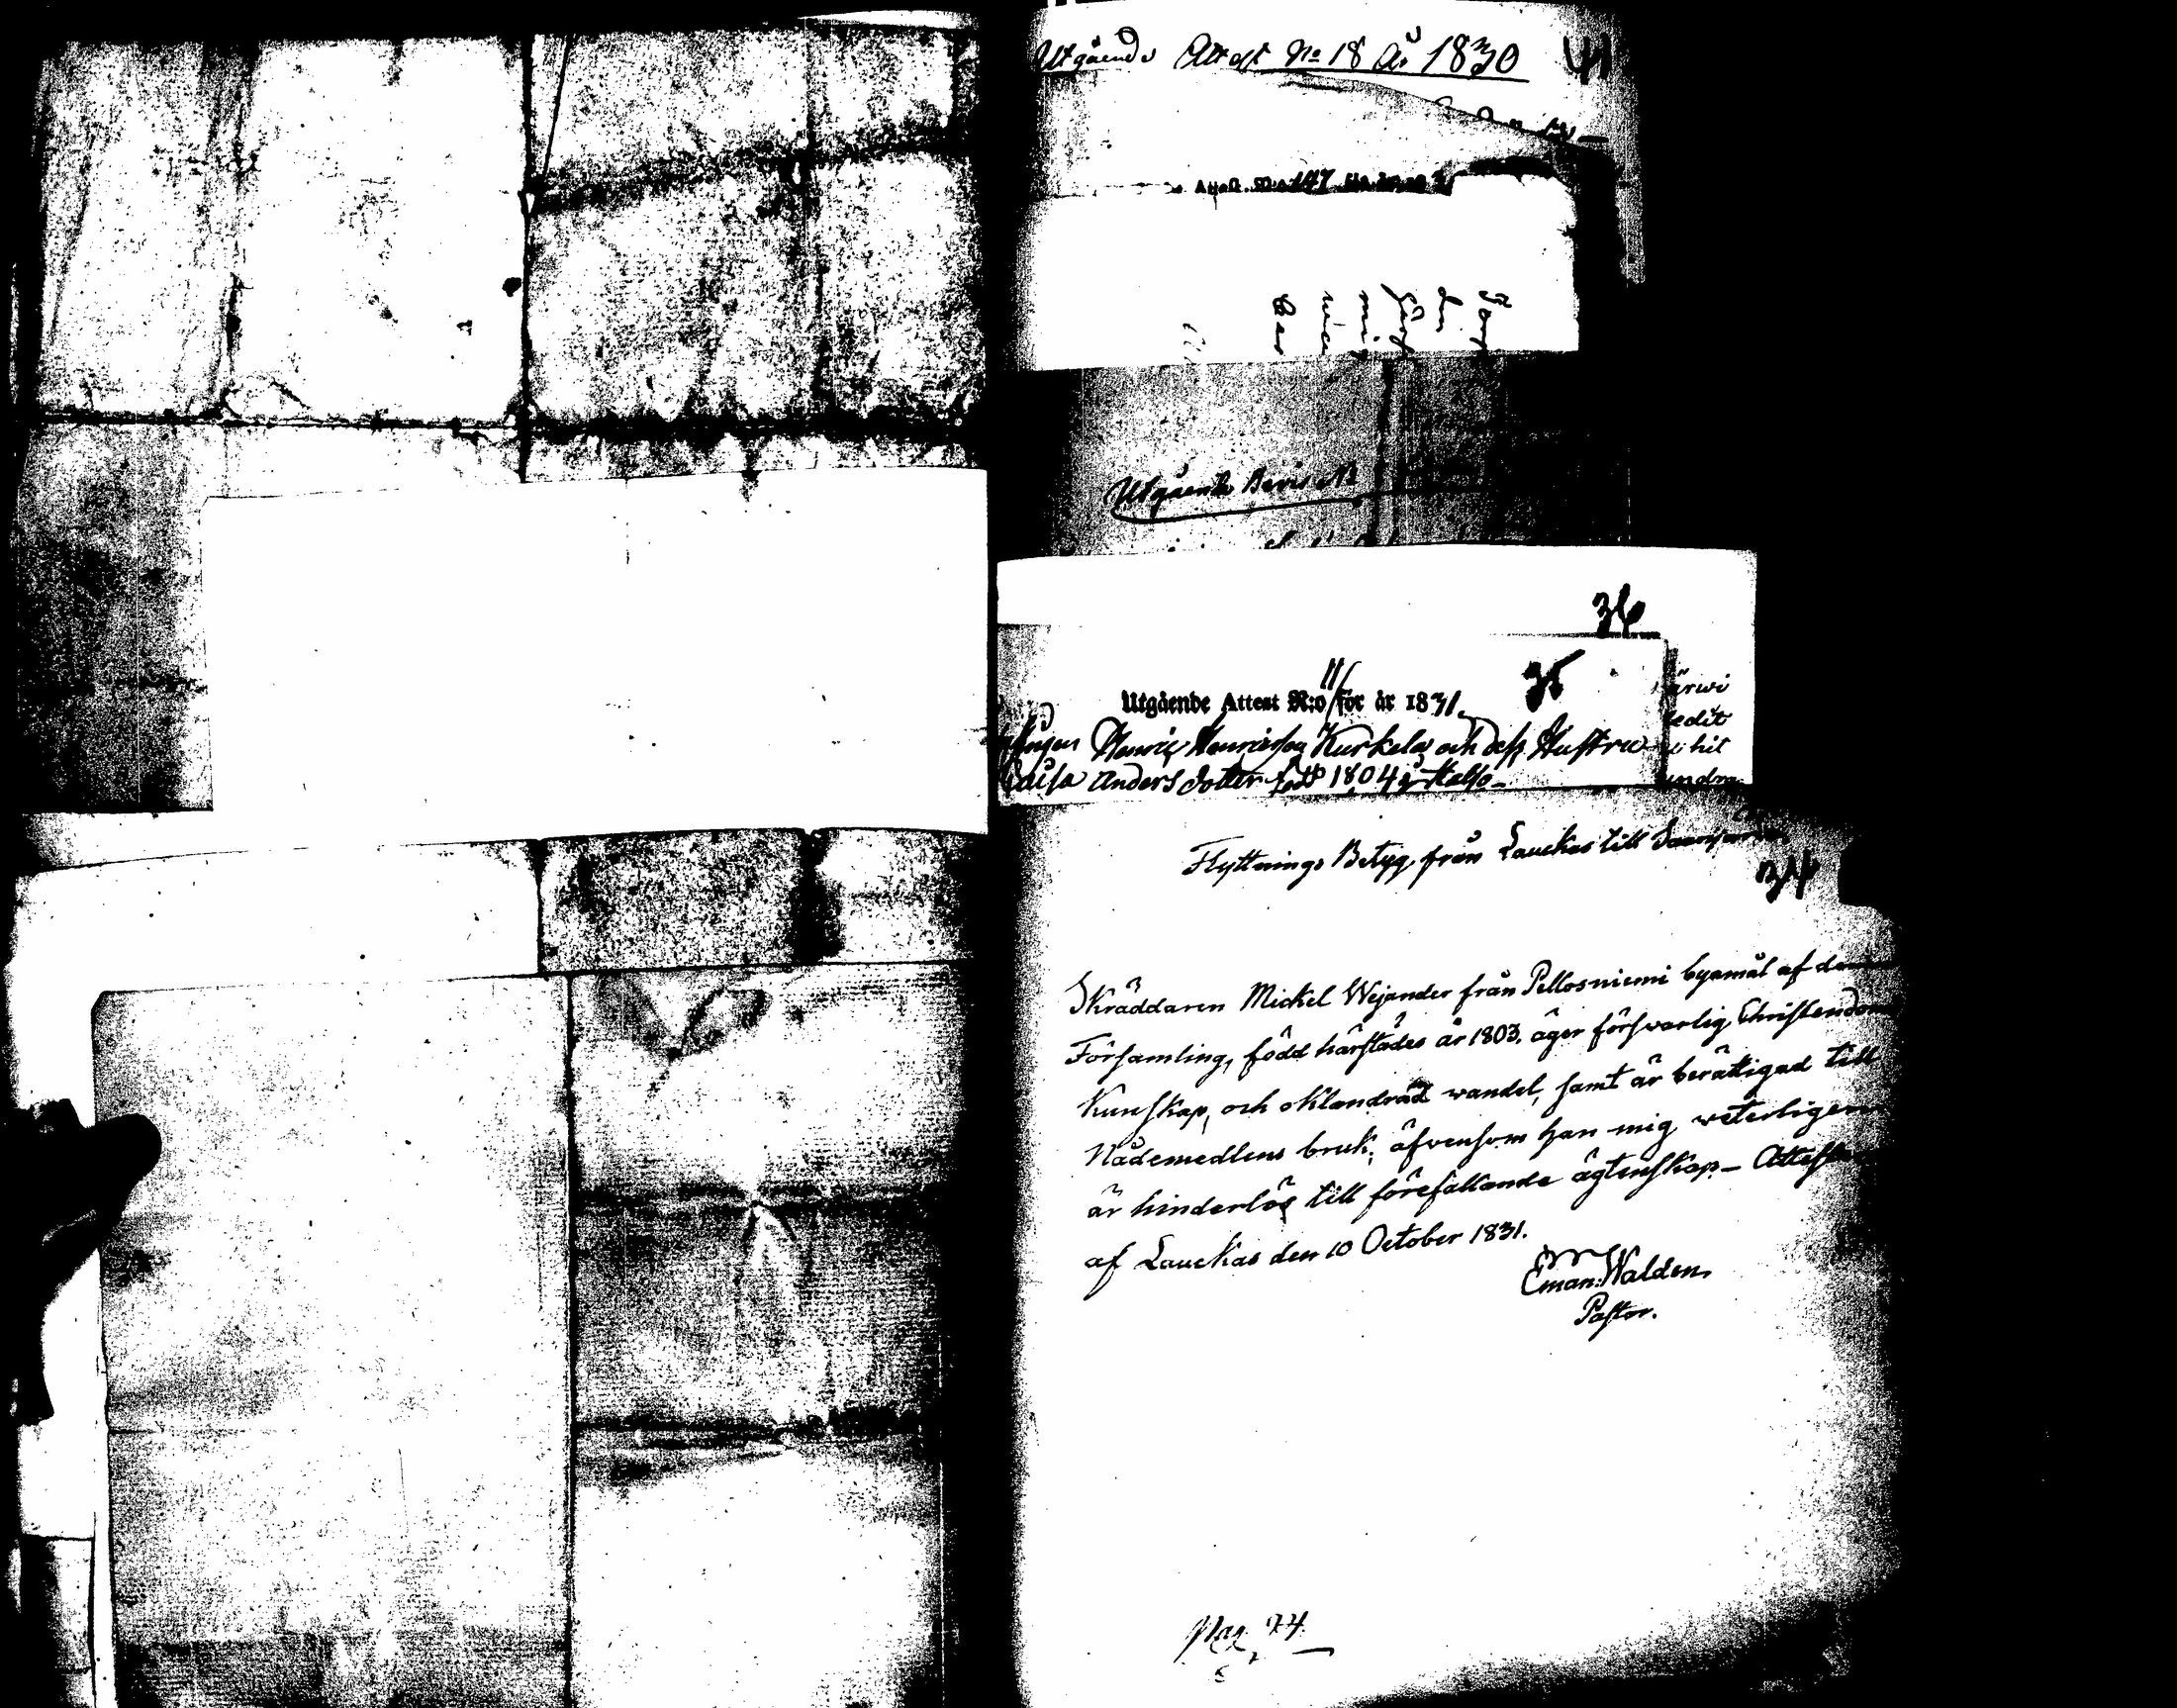 Utgående Attest No 18 År 1830 41
Attest. N:o 147
Utgående Bevis N
36
Utgående Attest N:o 11/ för år 1831. 35
ärwi
edit
Henric Henricsson Kurkela och dess Hustru
hit
Caisa Anders dotter född 1804
undra
Flyttnings Betyg från Lauckas till
34
Skräddaren Mickel Wejander från Pellosniemi byamål af
Församling, född härstädes år 1803. äger förswarlig Christendoms
Kunskap, och oklandrad wandel, samt är berättigad till
Nådemedlens bruk; äfvensom han mig veterligen
är hinderlös till förefallande ägtenskap – Attest
af Lauckas den 10 October 1831.
Eman: Walden,
Pastor.
Pag. 74.